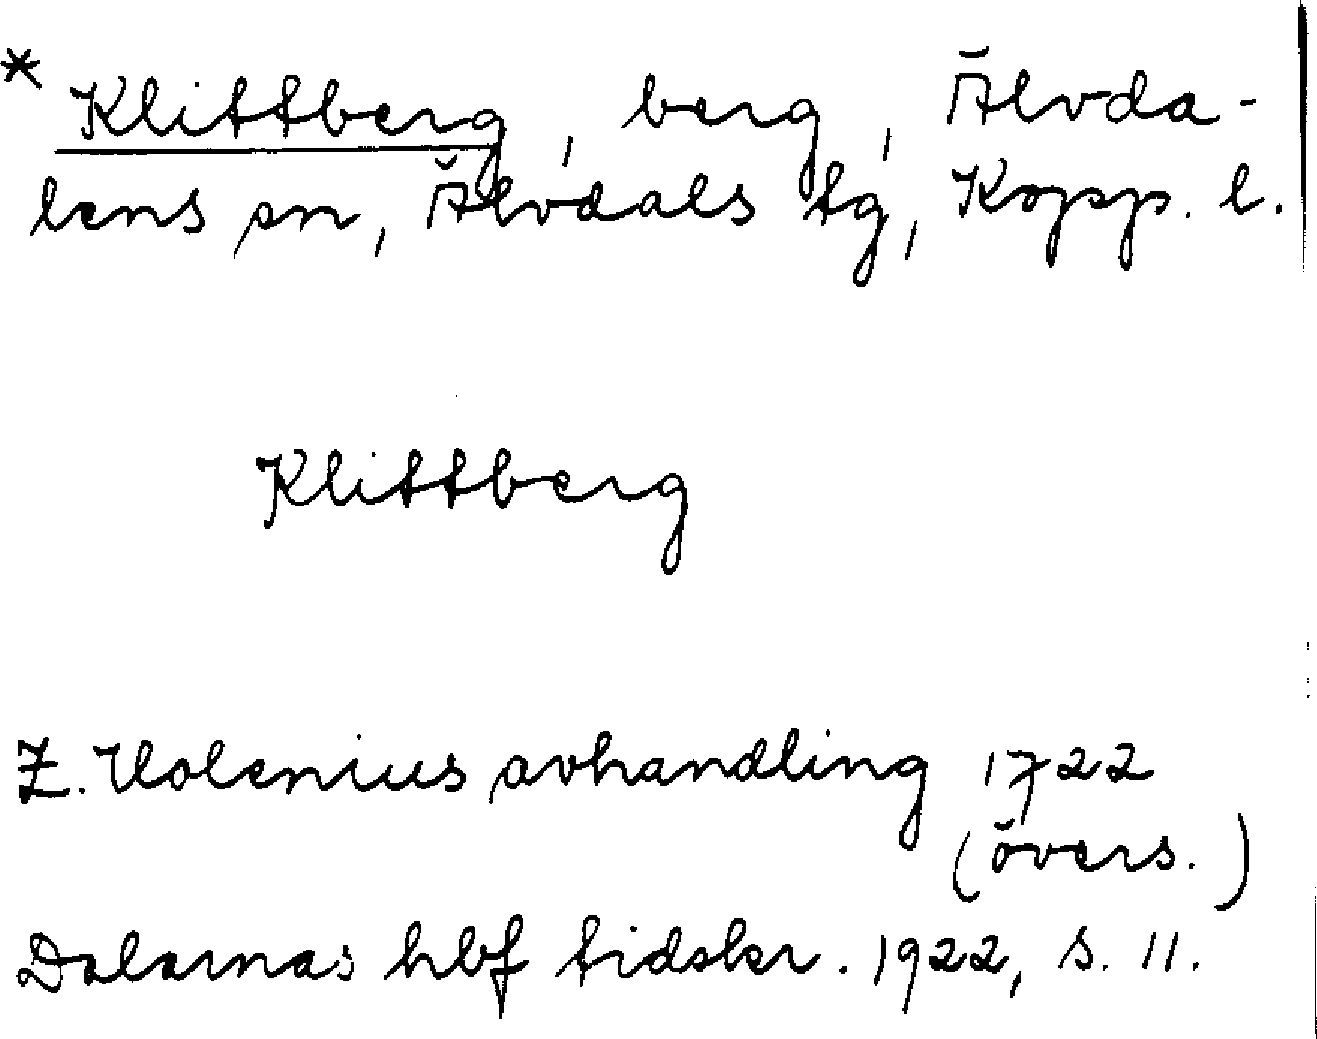 * Klittberg, berg, Älvda-
lens sn, Älvdals tg, Kopp. l.
Klittberg
Z. Holenius avhandling 1722
(övers.)
Dalarnas hbf tidskr. 1922, s. 11.